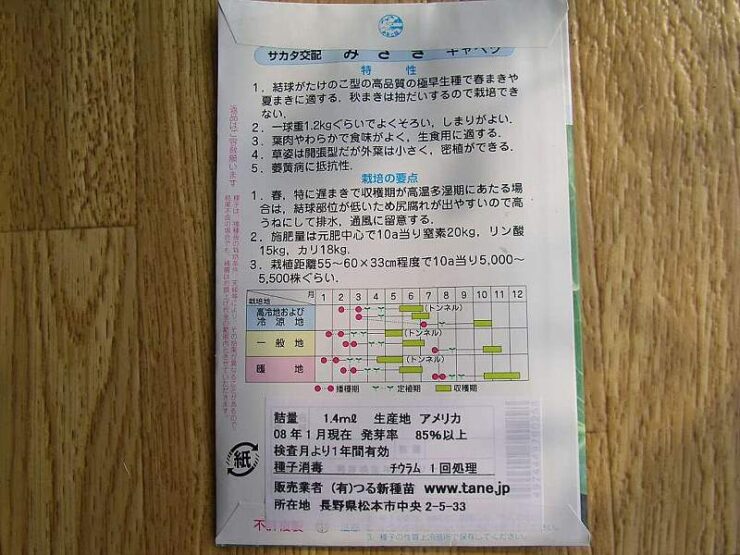 サカタ交配 みさき キャベツ
特 性
1．結球がたけのこ型の高品質の極早生種で春まきや
夏まきに適する．秋まきは抽だいするので栽培でき
ない．
2．一球重1.2kgぐらいでよくそろい，しまりがよい．
3．葉肉やわらかで食味がよく，生食用に適する．
4．草姿は開張型だが外葉は小さく，密植ができる．
5．萎黄病に抵抗性．
栽培の要点
1．春，特に遅まきで収穫期が高温多湿期にあたる場
合は，結球部位が低いため尻腐れが出やすいので高
うねにして排水，通風に留意する．
2．施肥量は元肥中心で10a当り窒素20kg，リン酸
15kg，カリ18kg．
3．栽植距離55～60×33cm程度で10a当り5,000～
5,500株ぐらい．
栽培地 月 1 2 3 4 5 6 7 8 9 10 11 12
高冷地および
冷涼地 (トンネル)
一般地 (トンネル)
暖地 (トンネル)
播種期 定植期 収穫期
返品はご容赦願います
詰量 1.4mℓ 生産地 アメリカ
08年1月現在 発芽率 85%以上
検査月より1年間有効
種子消毒 チウラム 1回処理
販売業者 (有)つる新種苗 www.tane.jp
所在地 長野県松本市中央2-5-33
紙
不許複製